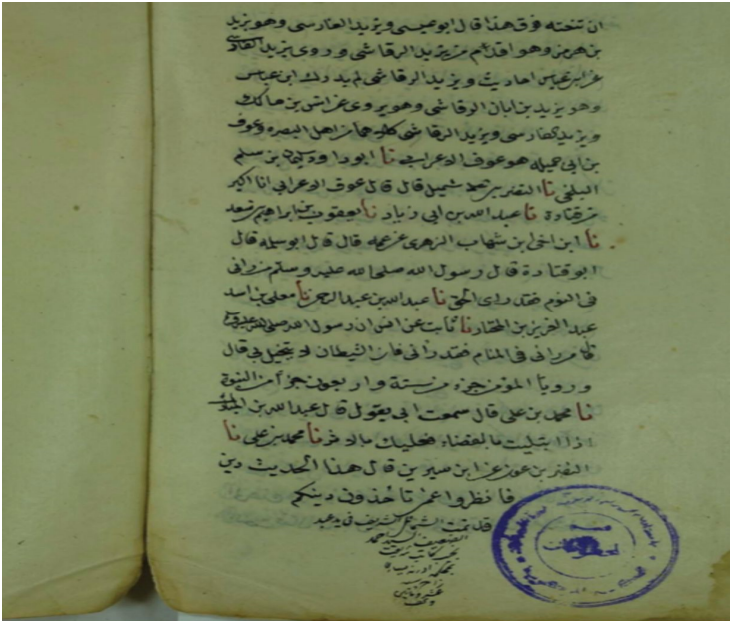 ان تنعته فوق هذا قال ابو عيسى ويزيد الفارسى وهو يزيد
بن هرمز وهو اقدم من يزيد الرقاشي وروى يزيد الفارسي
عن ابن عباس احاديث ويزيد الرقاشى لم يدرك ابن عباس
وهو يزيد بن ابان الرقاشى وهو يروى عن انس بن مالك
ويزيد الفارسى ويزيد الرقاشى كلاهما من اهل البصرة وعوف
بن ابى جميله هو عوف الاعرابى نا ابو داود سليمان بن سلم
البلخى نا النضر بن شميل قال قال عوف الاعرابى انا اكبر
من قتادة نا عبد الله بن ابى زياد نا يعقوب بن ابراهيم بن سعد
نا ابن اخى ابن شهاب الزهرى عن عمه قال قال ابو سلمه قال
ابو قتادة قال رسول الله صلى الله عليه وسلم من رانى
فى النوم فقد راى الحق نا عبد الله بن عبد الرحمن نا معلى بن اسد
عبد العزيز بن المختار نا ثابت عن انس ان رسول الله صلى الله عليه وسلم
قال من رانى فى المنام فقد رانى فان الشيطان لا يتخيل بى قال
ورويا المؤمن جزء من ستة واربعون جزأ من النبوة
نا محمد بن على قال سمعت ابى يقول قال عبد الله بن المبارك
اذا ابتليت بالقضاء فعليك بالاثر نا محمد بن على نا
النضر بن عون عن ابن سيرين قال هذا الحديث دين
فانظروا عمن تأخذون دينكم
قد تمت الشمائل الشريف فى يد عبد